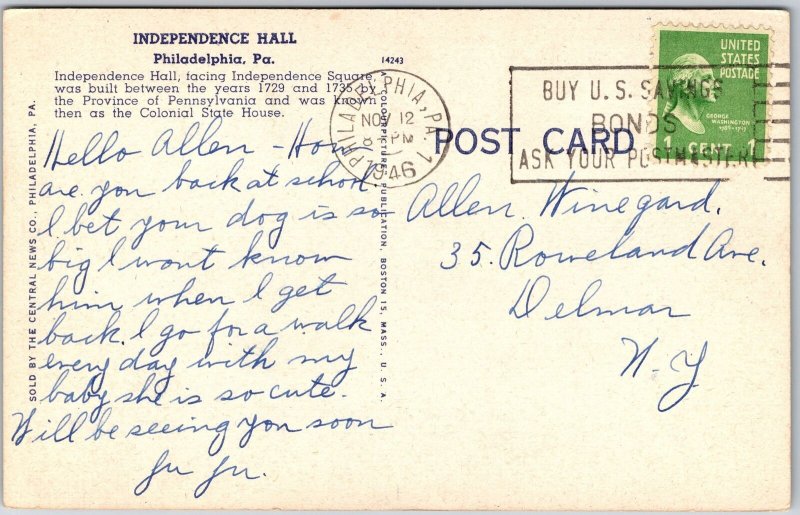 INDEPENDENCE HALL
Philadelphia, Pa.
14243
Independence Hall, facing Independence Square,
was built between the years 1729 and 1735 by
the Province of Pennsylvania and was known
then as the Colonial State House.
Hello Allen - How
are you back at school
I bet your dog is so
big I wont know
him when I get
back. I go for a walk
every day with my
baby she is so cute.
Will be seeing you soon
Ju Ju.
SOLD BY THE CENTRAL NEWS CO., PHILADELPHIA, PA.
A COLOURPICTURE PUBLICATION, BOSTON 15, MASS., U. S. A.
PHILADELPHIA, PA. 1
NOV 12
PM
1946
BUY U.S. SAVINGS
BONDS
ASK YOUR POSTMASTER
UNITED
STATES
POSTAGE
GEORGE
WASHINGTON
1789-1797
1 CENT 1
POST CARD
Allen Winegard.
35. Roweland Ave.
Delmar
N. Y